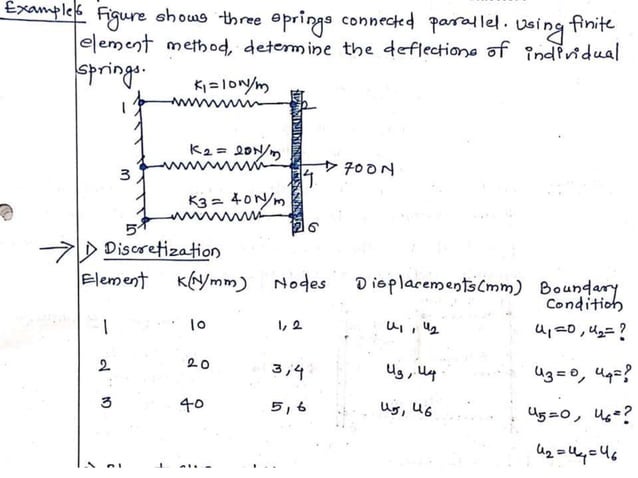 Example 6 Figure shows three springs connected parallel. Using finite
element method, determine the deflections of individual
springs.
K1 = 10N/m
1
2
K2 = 20N/m
3
4
700N
K3 = 40N/m
5
6
→ 1) Discretization
Element K(N/mm) Nodes Displacements(mm) Boundary Condition
1 10 1, 2 u1, u2 u1=0, u2=?
2 20 3, 4 u3, u4 u3=0, u4=?
3 40 5, 6 u5, u6 u5=0, u6=?
u2=u4=u6